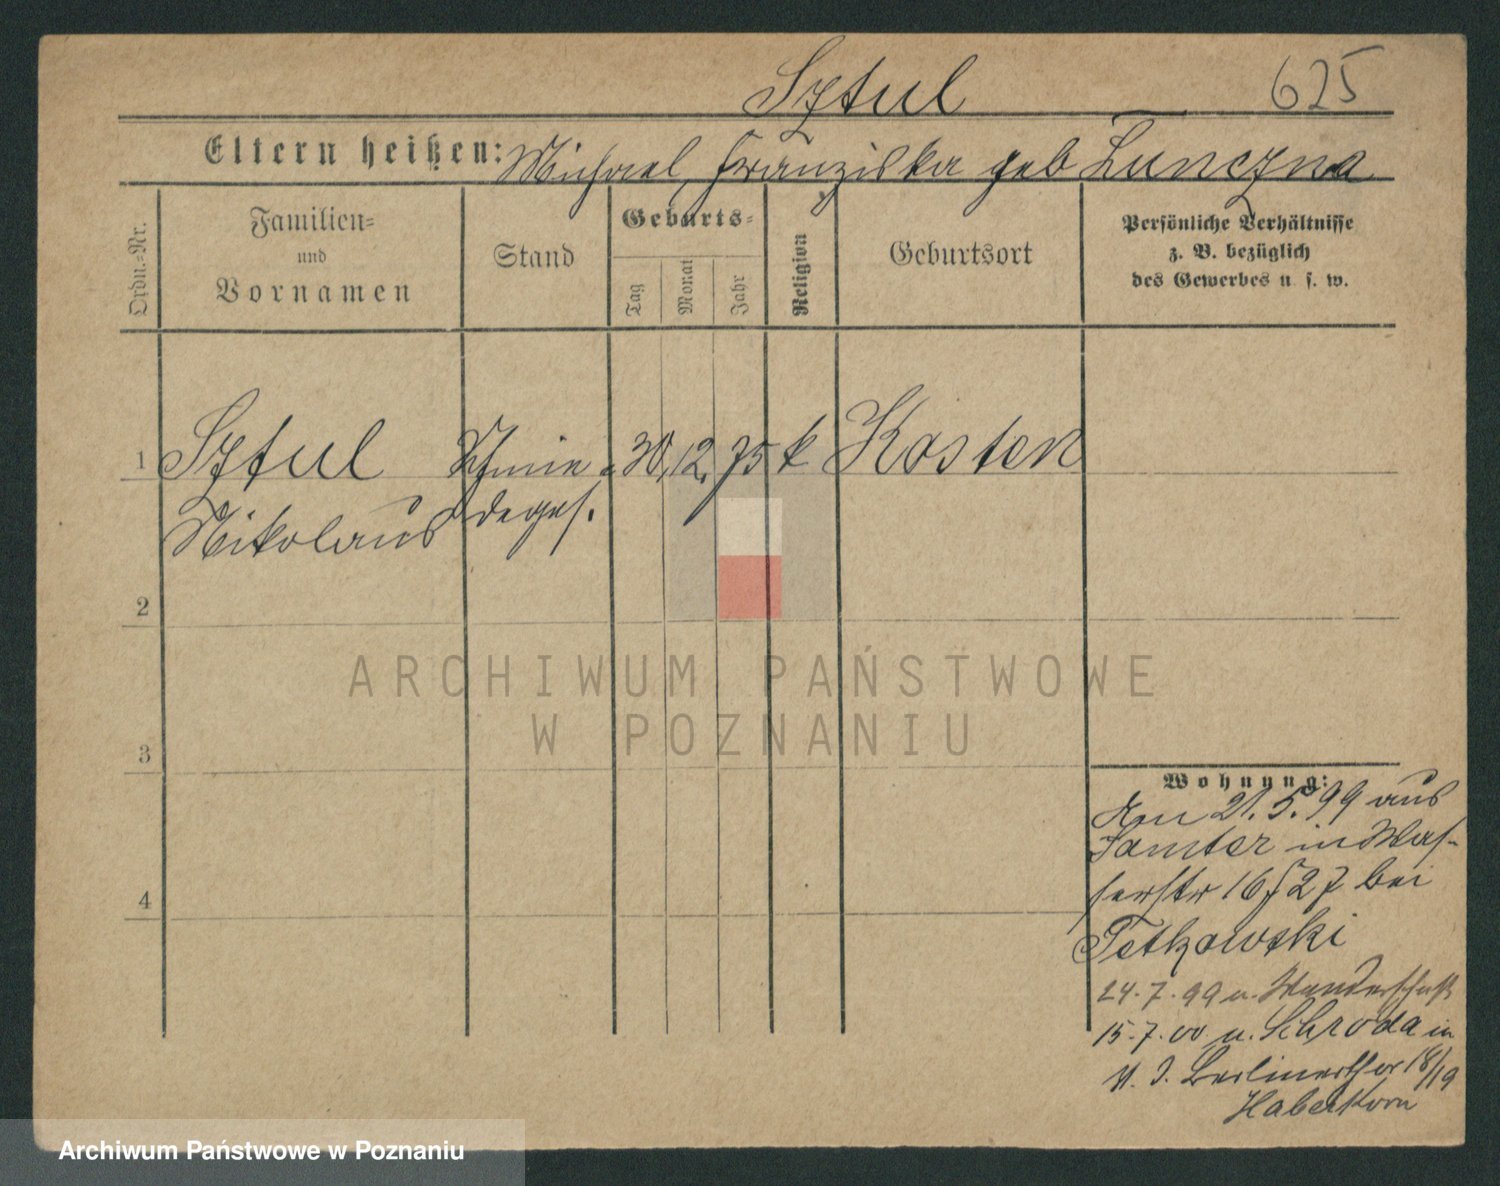 Sztul 625
Eltern heißen: Michael, Franziska geb Lunczna
Ordn.-Nr.
Familien-
und
Vornamen
Stand
Geburts-
Tag
Monat
Jahr
Religion
Geburtsort
Persönliche Verhältnisse
z. B. bezüglich
des Gewerbes u. s. w.
1 Sztul Schmie- 30. 12. 75 k Kosten
Nikolaus deges.
2
3
4
ARCHIWUM PAŃSTWOWE
W POZNANIU
Wohnung:
21.5.99 aus
Samter in Was-
serstr 16/27 bei
Tetkowski
24.7.99 a. Wanderschaft
15.7.00 a. Schroda in
Berlinerthor 18/19
Haberkorn
Archiwum Państwowe w Poznaniu